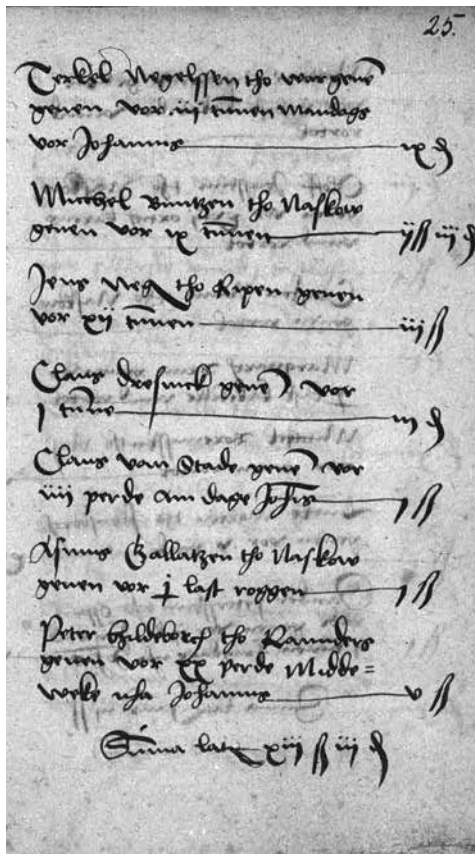 25.
Terkel Negelssen tho
geuen vor iii tunnen Mandags
vor Johannis ix d
Michel Buntzen tho Naskow
geuen vor ix tunnen ii ß iii d
Jens tho Ripen geuen
vor xii tunnen iii ß
Claus Dresinck geuen vor
j tunne iii d
Claus vam Stade geuen vor
iiii perde am dage Johis j ß
Asmus Gallatzen tho Naskow
geuen vor last roggen j ß
Peter Hildeborch tho Rannders
geuen vor xx perde Midde=
weke nha Johannis v ß
Suma lat xiii ß iii d